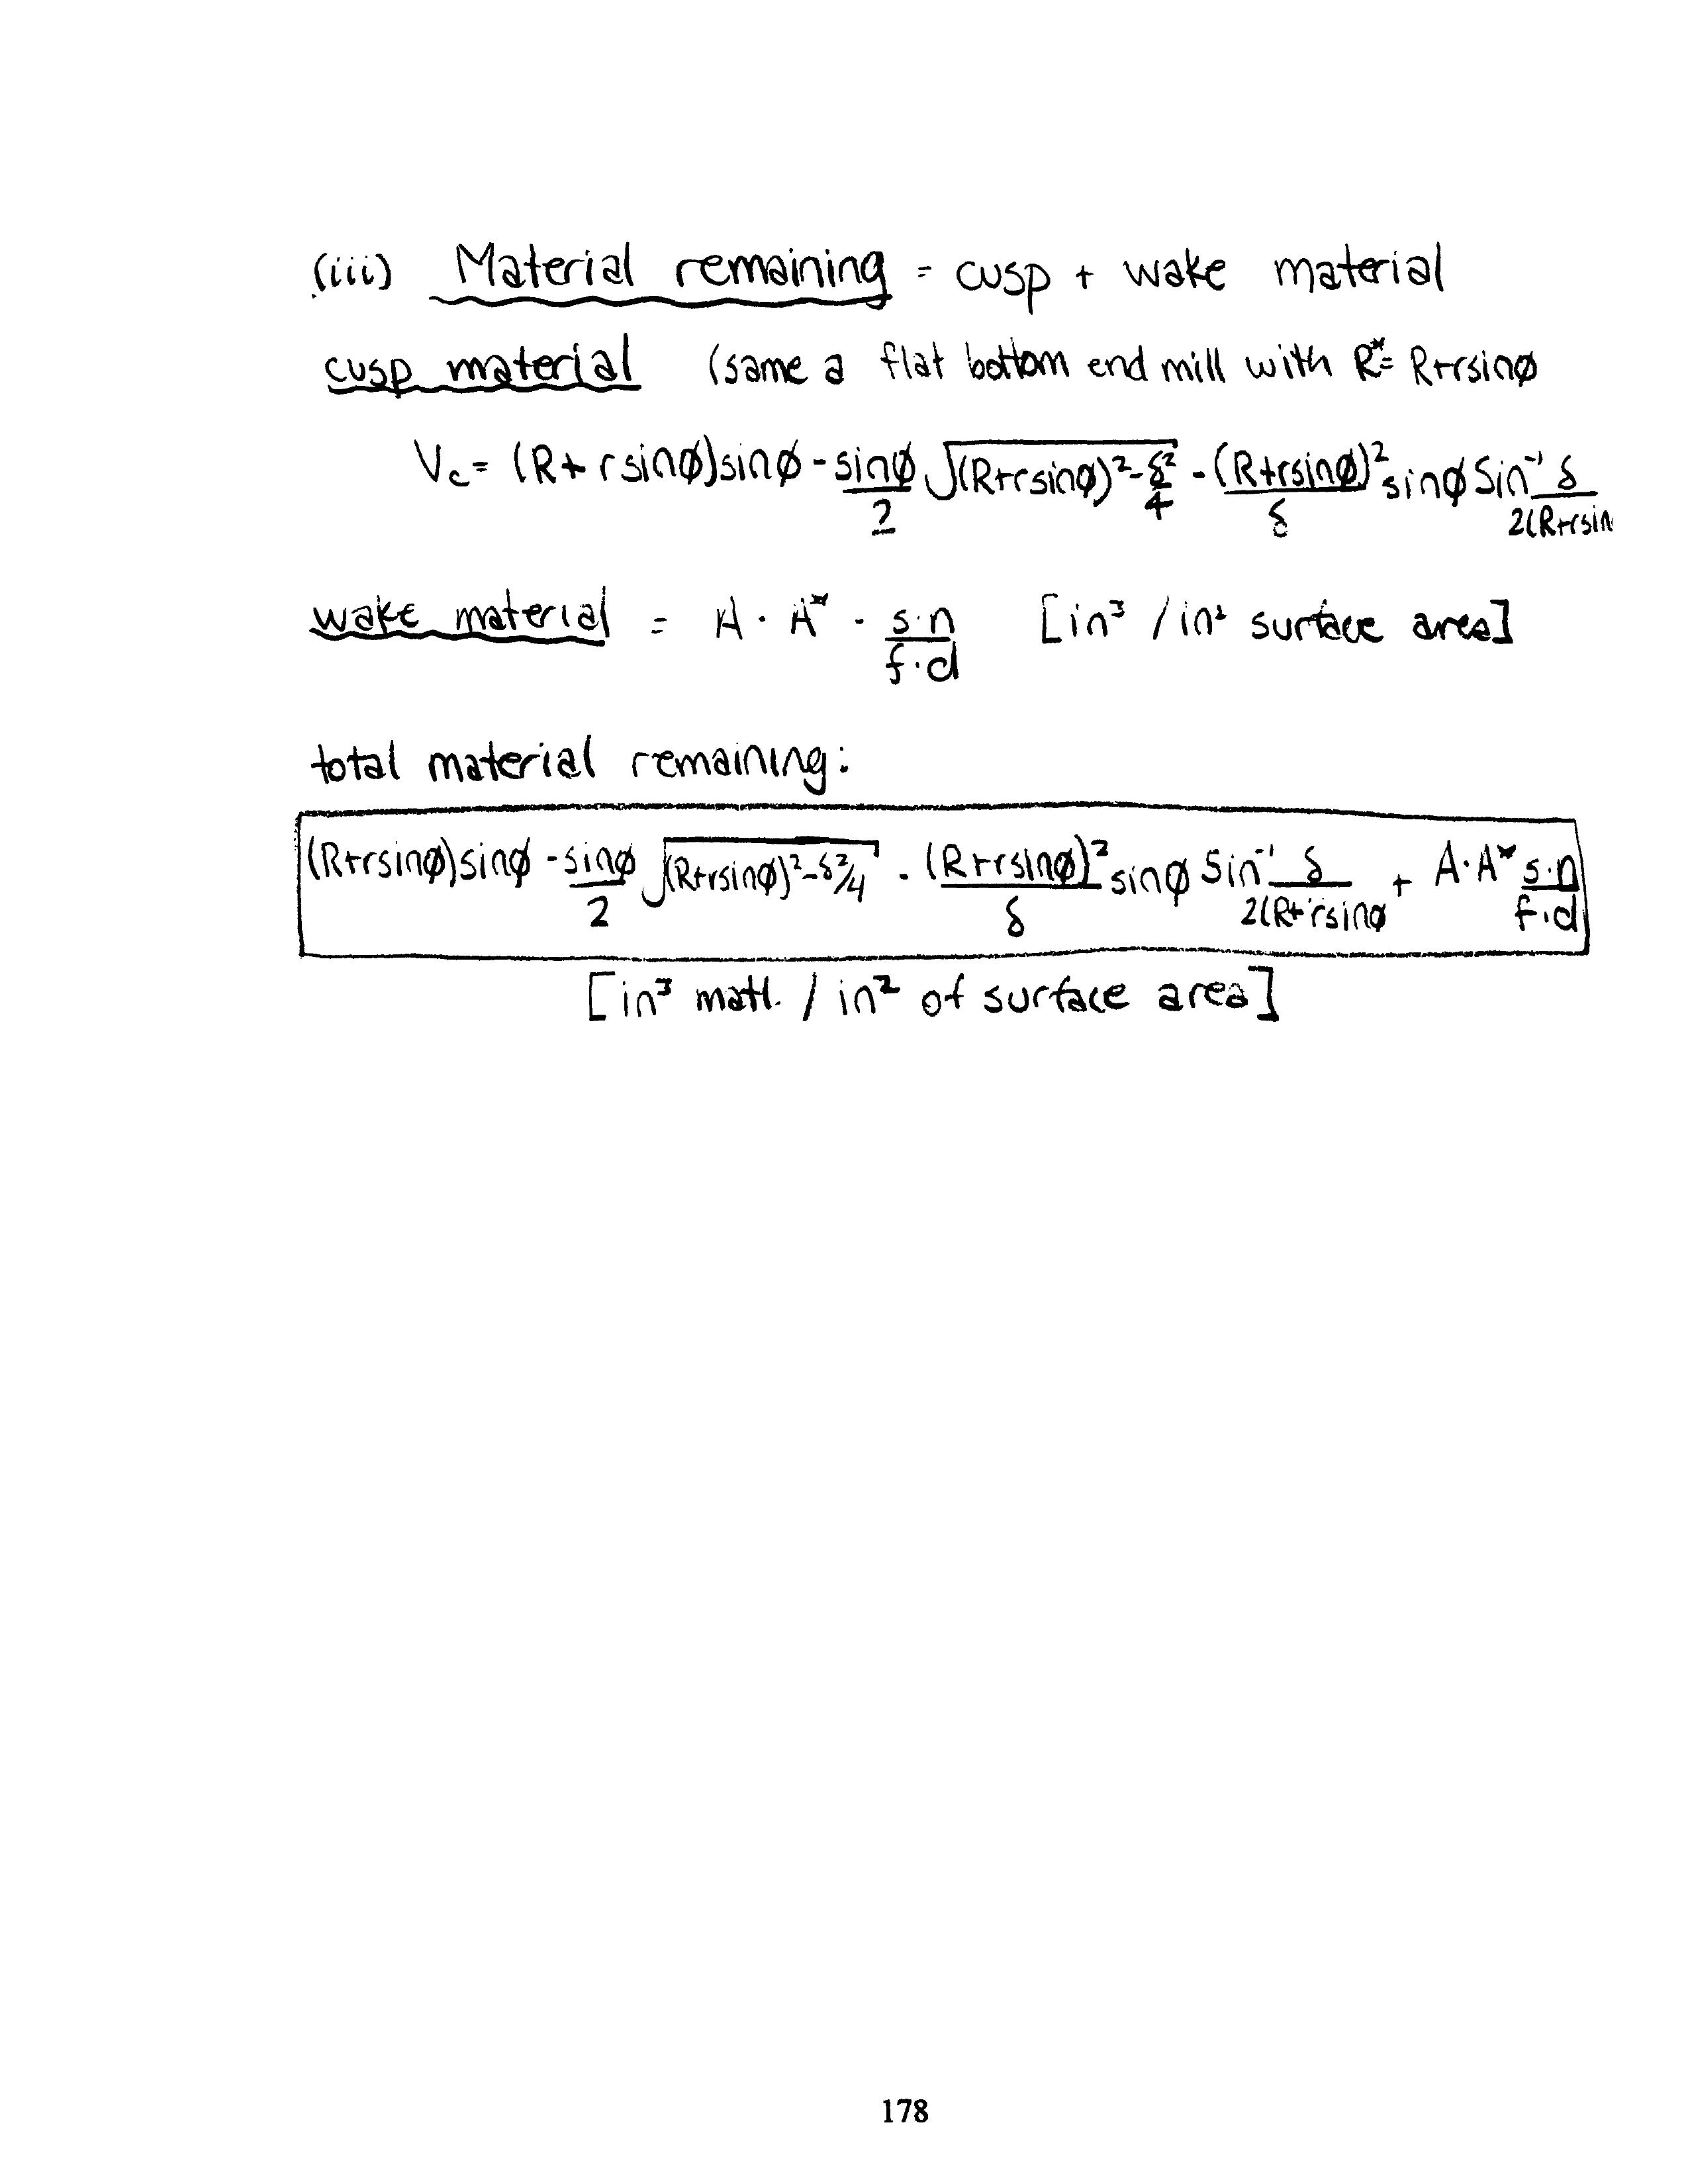 (iii) Material remaining = cusp + wake material
cusp material (same a flat bottom end mill with R* = R+rsinø
Vc = (R+rsinø)sinø - sinø/2 √((R+rsinø)² - δ²/4) - (R+rsinø)²/δ sinø Sin⁻¹ δ/2(R+rsin
wake material = A · A* · s·n/f·d [in³ / in² surface area]
total material remaining:
(R+rsinø)sinø - sinø/2 √((R+rsinø)² - δ²/4) - (R+rsinø)²/δ sinø Sin⁻¹ δ/2(R+rsinø + A·A* s·n/f·d
[in³ matl. / in² of surface area]
178